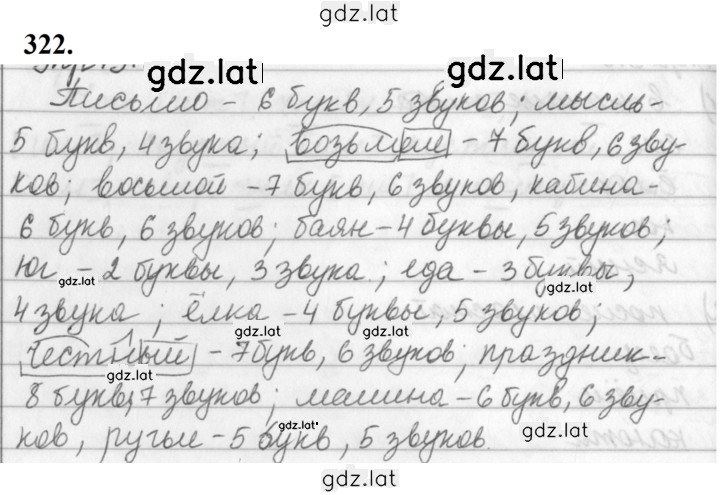 gdz.lat
322.
gdz.lat gdz.lat
Письмо - 6 букв, 5 звуков; мысль-
5 букв, 4 звука; возьмём - 7 букв, 6 зву-
ков; восьмой - 7 букв, 6 звуков, кабина -
6 букв, 6 звуков; баян - 4 буквы, 5 звуков;
юг - 2 буквы, 3 звука; еда - 3 буквы,
gdz.lat gdz.lat
4 звука; ёлка - 4 буквы, 5 звуков;
gdz.lat gdz.lat
честный - 7 букв, 6 звуков; праздник-
8 букв, 7 звуков; машина - 6 букв, 6 зву-
gdz.lat gdz.lat
ков, ружьё - 5 букв, 5 звуков.
gdz.lat